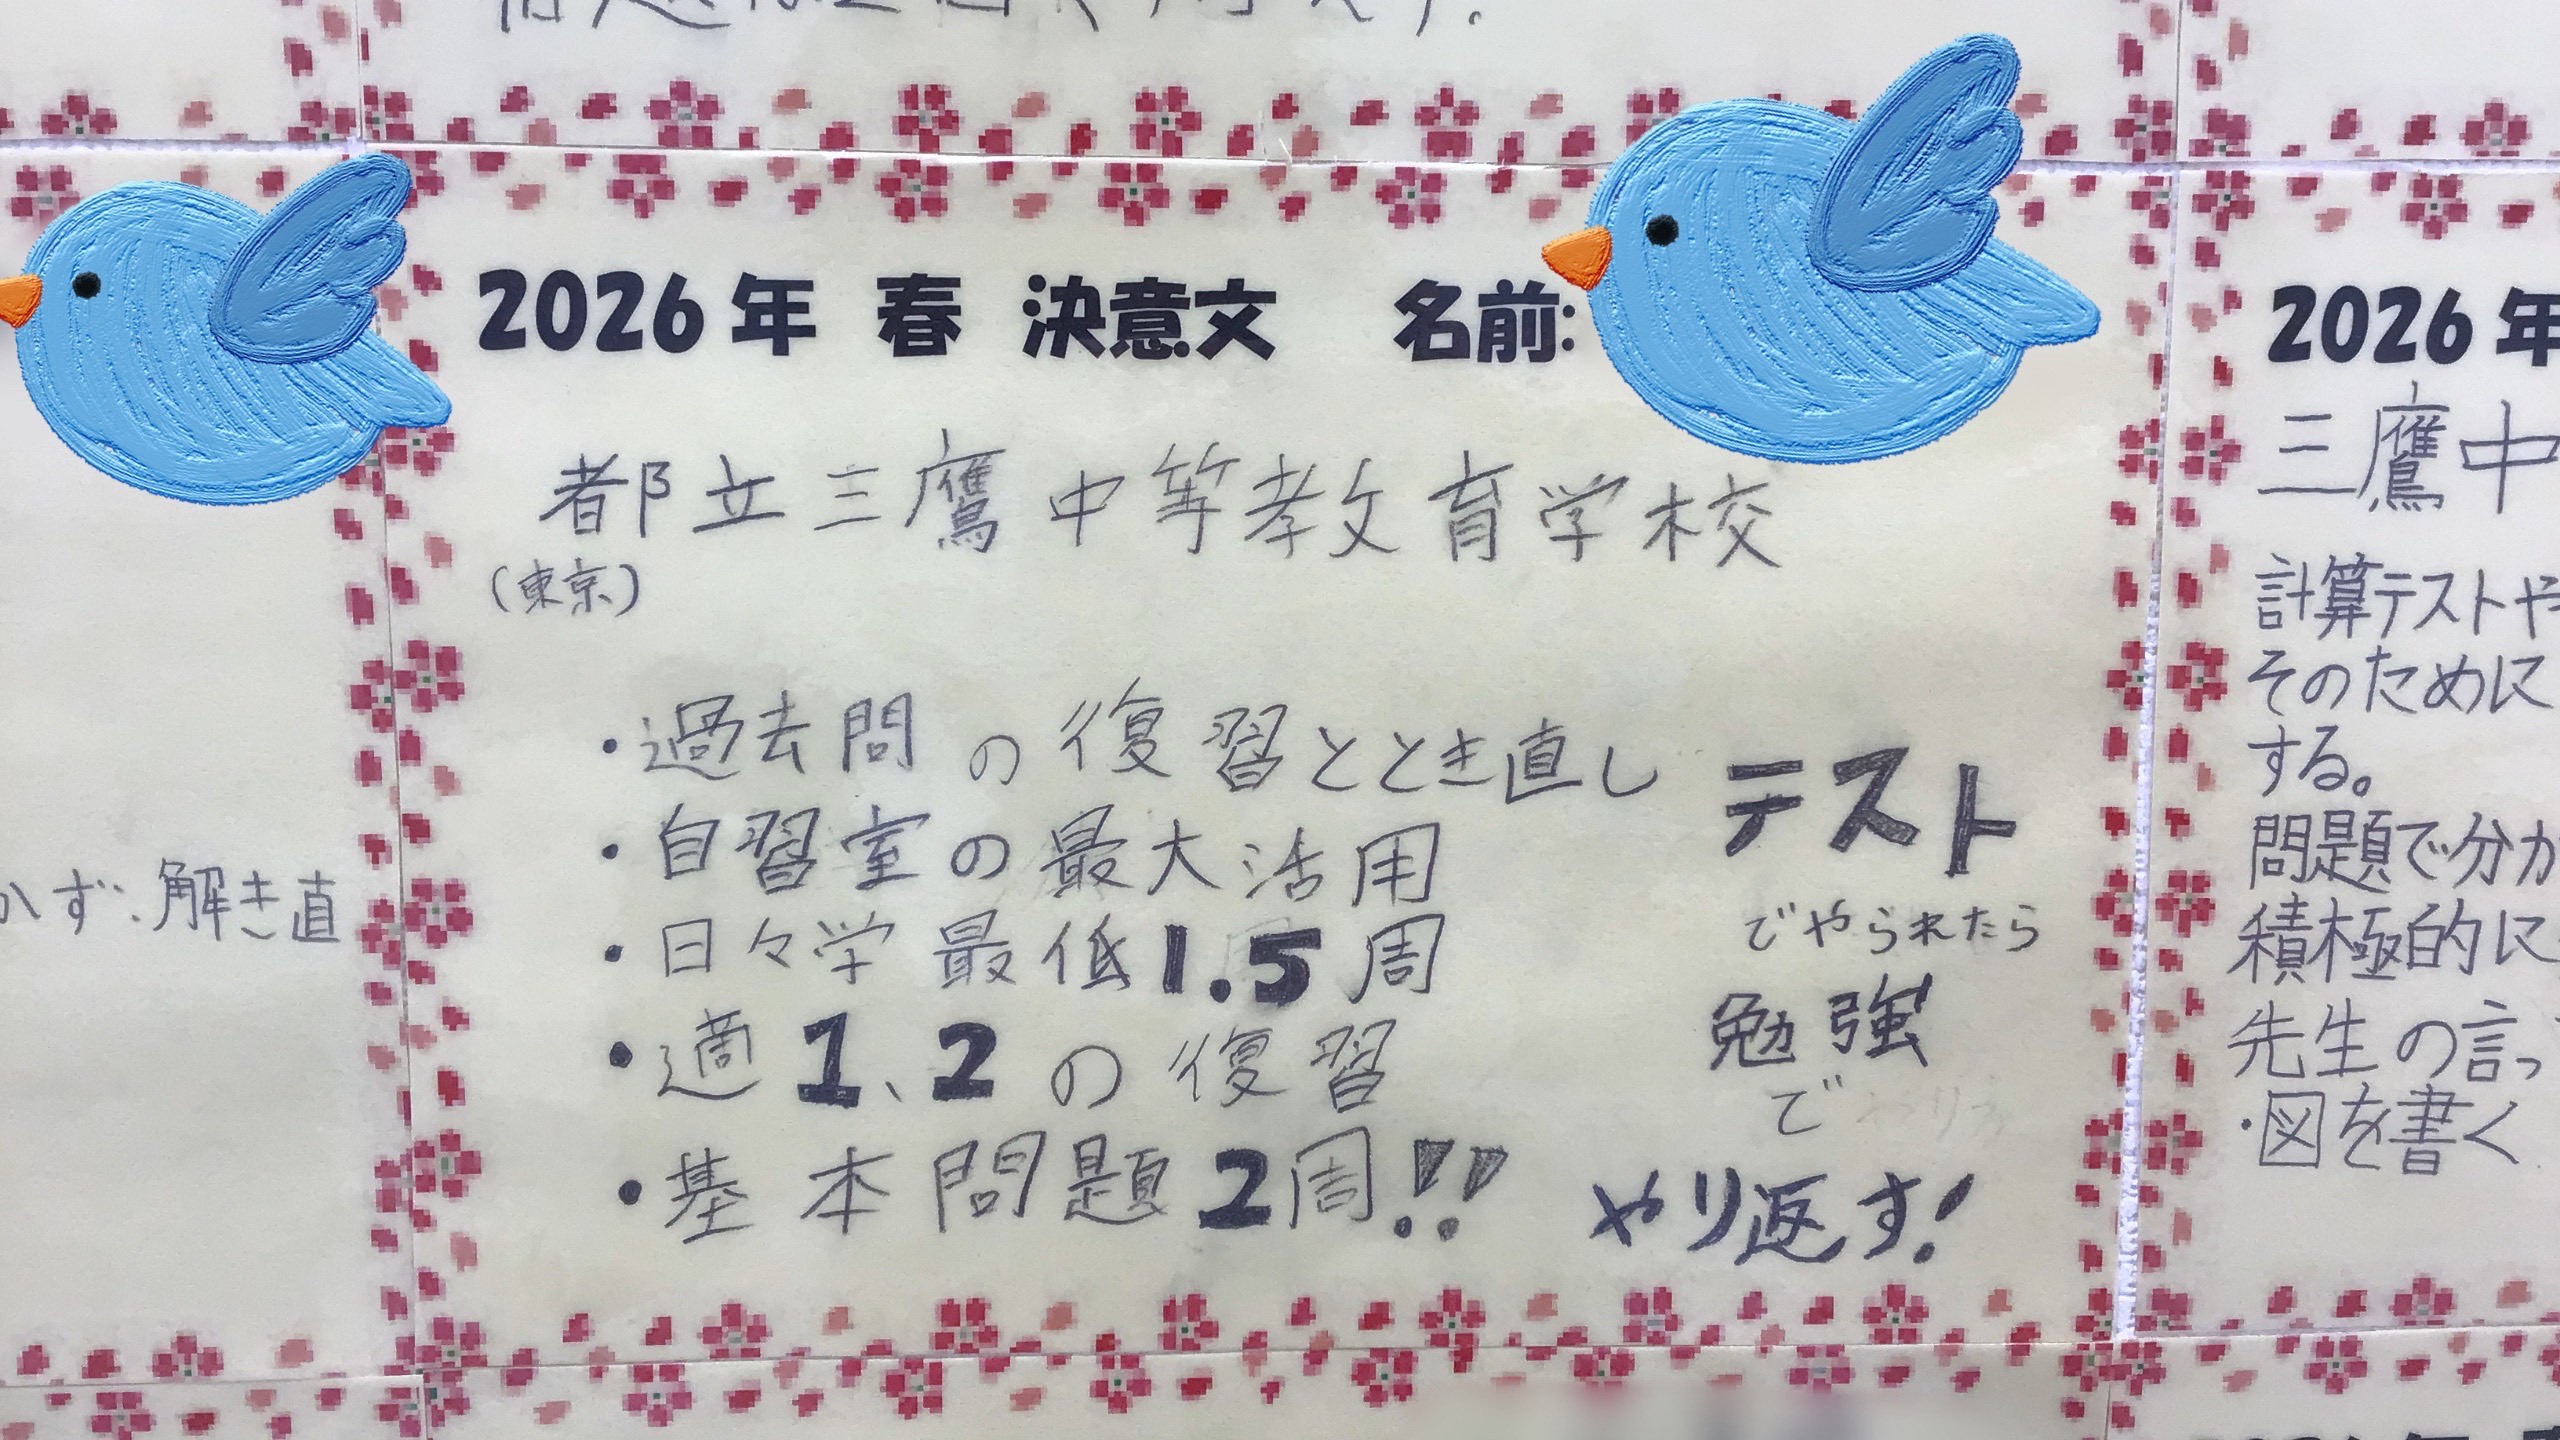 2026年 春 決意文 名前:
都立三鷹中等教育学校
(東京)
・過去問の復習ととき直し
・自習室の最大活用
・日々学最低1.5周
・適1、2の復習
・基本問題2周!!
テスト
でやられたら
勉強
で
やり返す!
かず、解き直
2026年
三鷹中
計算テストや
そのために
する。
問題で分か
積極的に
先生の言っ
・図を書く